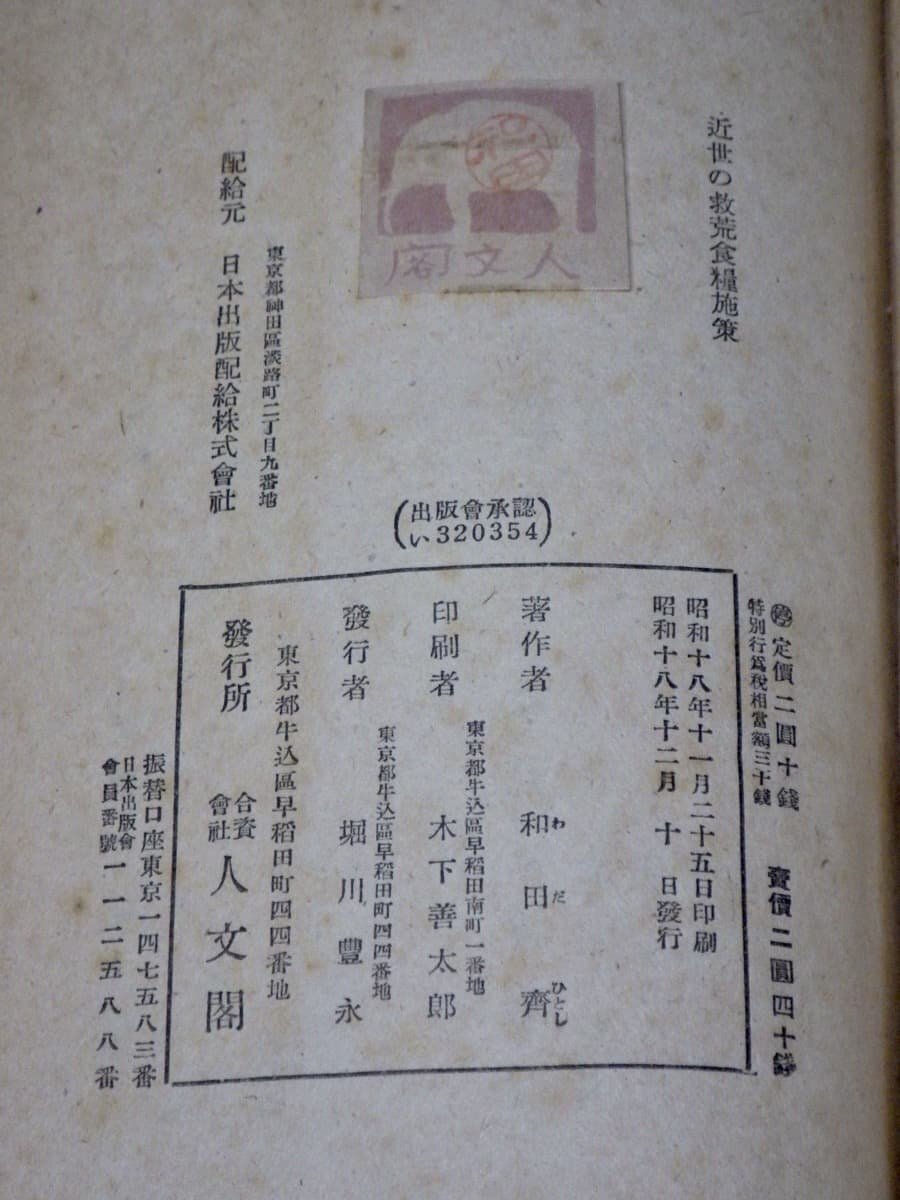 近世の救荒食糧施策
人文閣
和田
配給元 日本出版配給株式會社
東京都神田區淡路町二丁目九番地
(出版會承認
い320354)
定價二圓十錢 賣價二圓四十錢
特別行爲税相當額三十錢
昭和十八年十一月二十五日印刷
昭和十八年十二月 十 日發行
著作者 和田齊
わだ ひとし
東京都牛込區早稲田南町一番地
印刷者 木下善太郎
東京都牛込區早稲田町四四番地
發行者 堀川豐永
東京都牛込區早稲田町四四番地
發行所 合資會社 人文閣
振替口座東京一四七五八三番
日本出版會會員番號 一一二五八八番